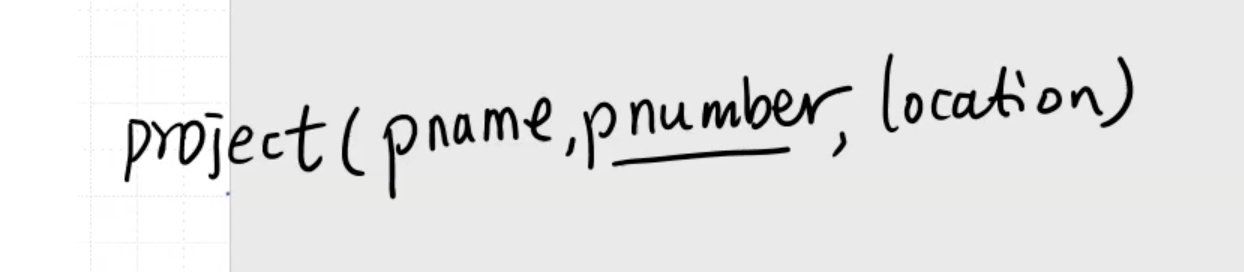 project(pname,pnumber, location)